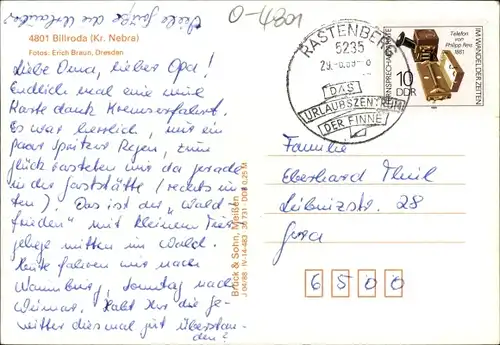 Viele Grüße die Urlauber
O-4801
4801 Billroda (Kr. Nebra)
Fotos: Erich Braun, Dresden
Liebe Oma, lieber Opa!
Endlich mal eine
Karte dank
Es war herrlich, mit ein
paar Spritzer Regen, zum
Glück rasteten wir da gerade
in der Gaststätte (rechts un-
ten). Das ist der "Wald-
frieden" mit kleinem Tier-
gehege mitten im Wald.
Heute fahren wir nach
Naumburg, Sonntag nach
Weimar. Habt Ihr die Ge-
witter diesmal gut überstan-
den?
Bruck & Sohn, Meißen
J 04/88 · IV-14-483 · DDR 0,25 M
RASTENBERG
5235
DAS
URLAUBSZENTRUM
DER FINNE
FERNSPRECHAPPARATE
IM WANDEL DER ZEITEN
Telefon
von
Philipp Reis
1861
10
DDR
Familie
Eberhard Theil
Leibnizstr. 28
Gera
6500